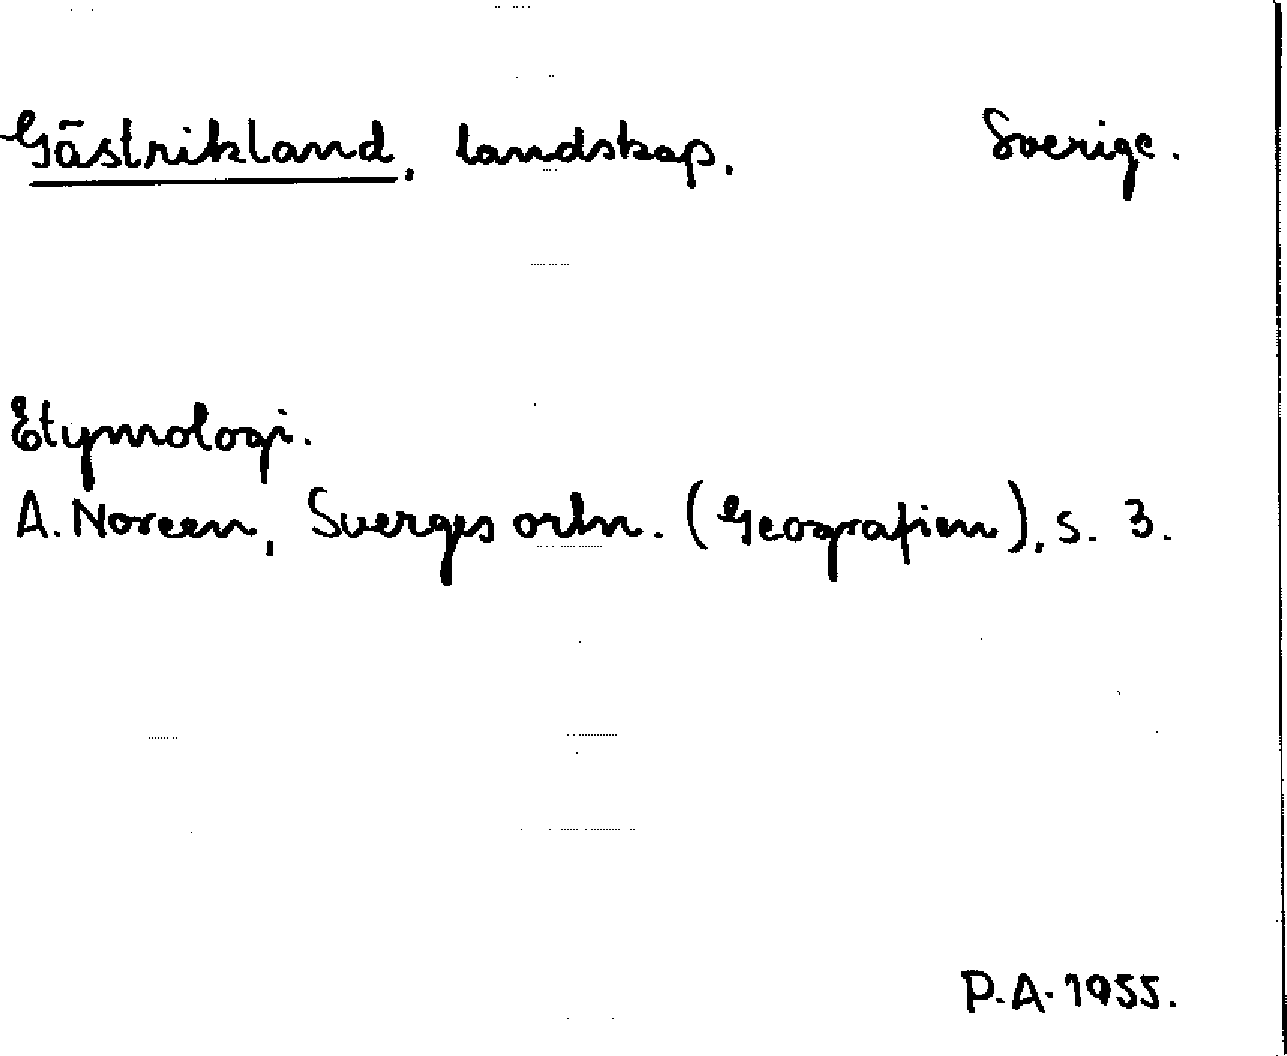 Gästrikland, landskap. Sverige.
Etymologi.
A. Noreen, Sverges ortn. (Geografien), s. 3.
P.A. 1955.